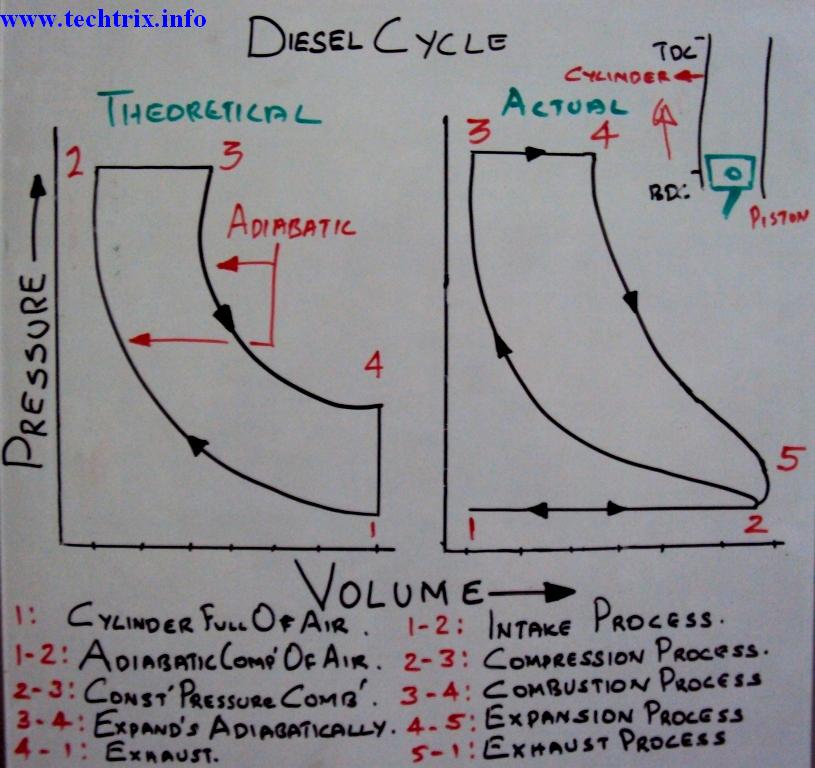 www.techtrix.info
DIESEL CYCLE
THEORETICAL
ACTUAL
TDC
CYLINDER
BDC
PISTON
2
3
ADIABATIC
4
1
3
4
5
1
2
PRESSURE
VOLUME
1: CYLINDER FULL OF AIR.
1-2: ADIABATIC COMP' OF AIR.
2-3: CONST' PRESSURE COMB'.
3-4: EXPAND'S ADIABATICALLY.
4-1: EXHAUST.
1-2: INTAKE PROCESS.
2-3: COMPRESSION PROCESS.
3-4: COMBUSTION PROCESS
4-5: EXPANSION PROCESS
5-1: EXHAUST PROCESS